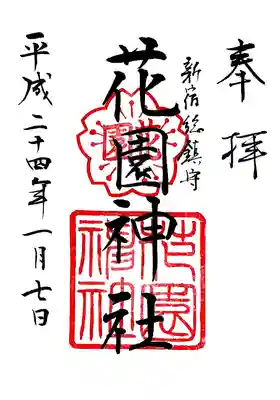 奉拝
新宿総鎮守
花園神社
平成二十四年一月七日